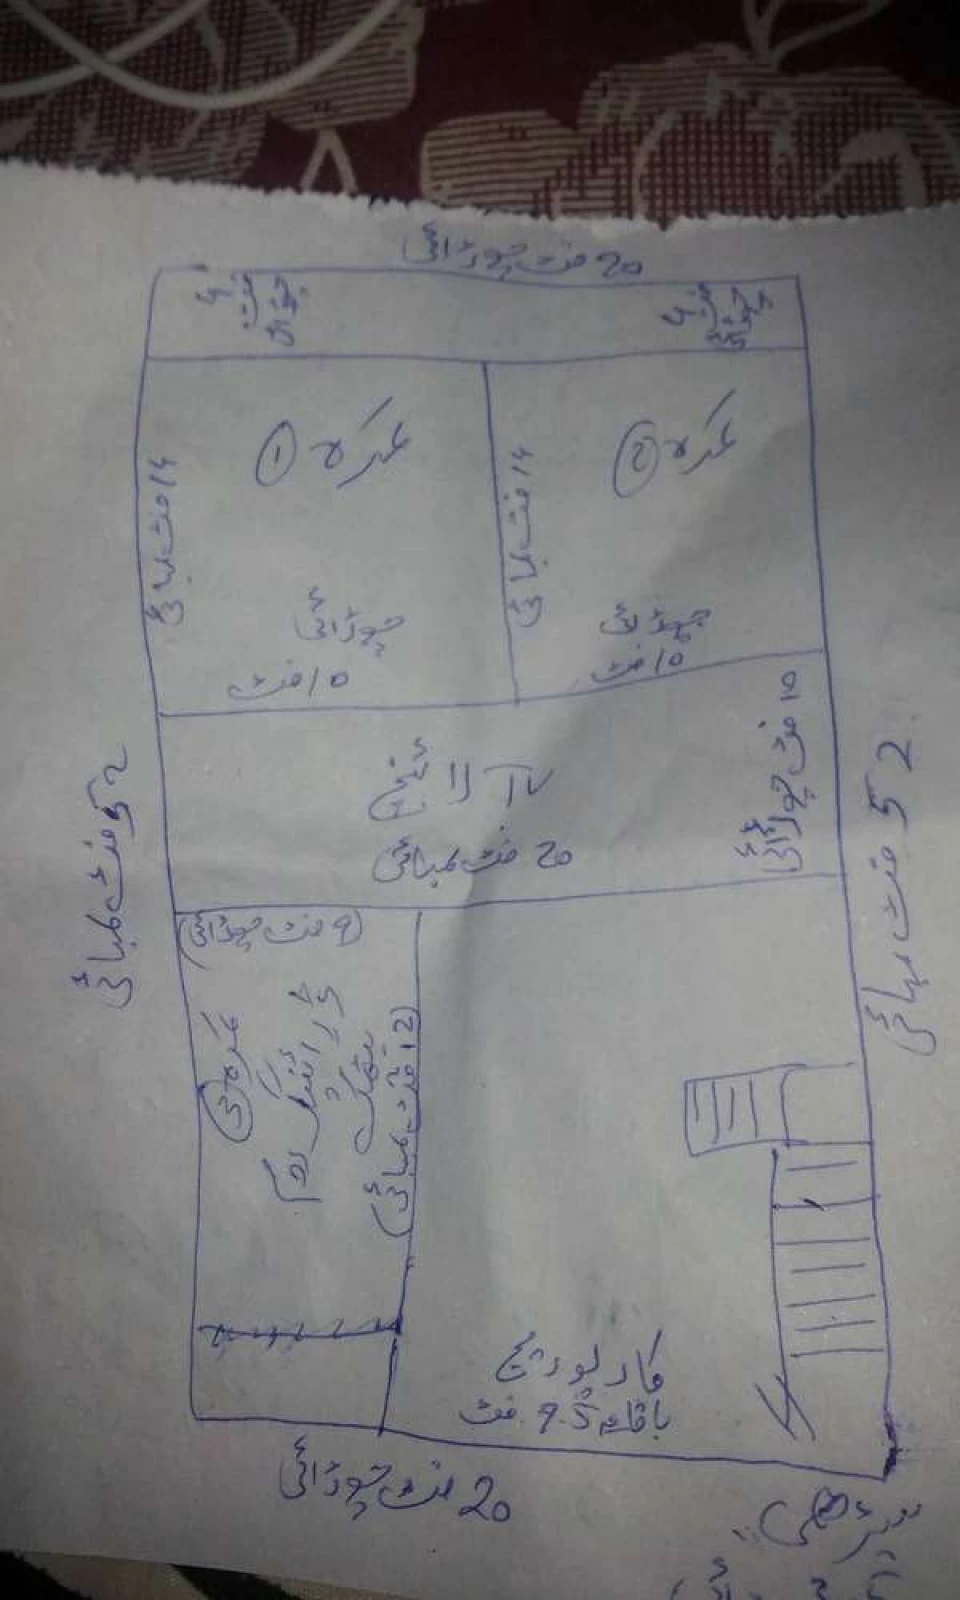 20 فٹ چوڑائی
4 فٹ چوڑائی
4 فٹ چوڑائی
کمرہ 1
کمرہ 2
14 فٹ لمبائی
14 فٹ لمبائی
چوڑائی
10 فٹ
چوڑائی
10 فٹ
52 فٹ لمبائی
52 فٹ لمبائی
لائنج
20 فٹ لمبائی
10 فٹ چوڑائی
(9 فٹ چوڑائی)
کمرہ 3
ڈرائنگ روم
بیٹھک
(12 فٹ لمبائی)
کار پورچ
9.5 فٹ
20 فٹ چوڑائی